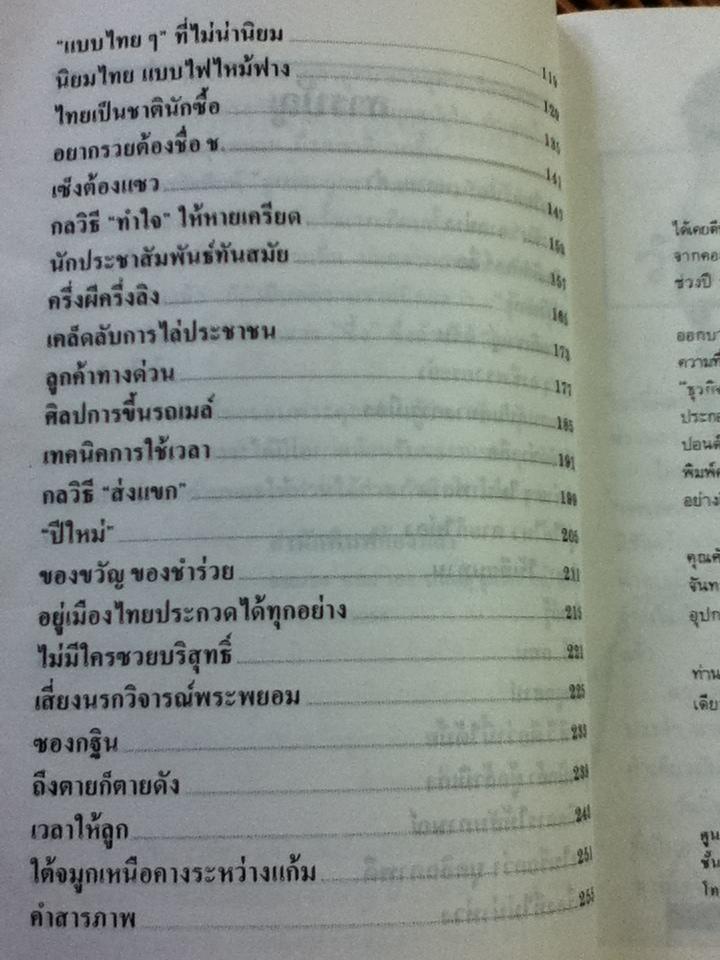 "แบบไทย ๆ" ที่ไม่น่านิยม
นิยมไทย แบบไฟไหม้ฟาง
ไทยเป็นชาตินักซื้อ 129
อยากรวยต้องชื่อ ช. 135
เซ็งต้องแซว 141
กลวิธี "ทำใจ" ให้หายเครียด
นักประชาสัมพันธ์ทันสมัย 157
ครึ่งผีครึ่งลิง
เคล็ดลับการไล่ประชาชน 173
ลูกค้าทางด่วน 177
ศิลปการขึ้นรถเมล์ 185
เทคนิคการใช้เวลา 191
กลวิธี "ส่งแขก" 199
"ปีใหม่" 205
ของขวัญ ของชำร่วย 211
อยู่เมืองไทยประกวดได้ทุกอย่าง 215
ไม่มีใครซวยบริสุทธิ์ 221
เสี่ยงนรกวิจารณ์พระพยอม 225
ซองกฐิน 233
ถึงตายก็ตายดัง 239
เวลาให้ลูก
ใต้จมูกเหนือคางระหว่างแก้ม 251
คำสารภาพ 255
ได้เคยตี
จากคอ
ช่วงปี
ออกบา
ความที่
"ธุรกิจ
ประกอ
ปอนด์
พิมพ์ค
อย่าง
คุณค
จันท
อุปก
ท่าน
เดีย
สูน
ชั้น
โท